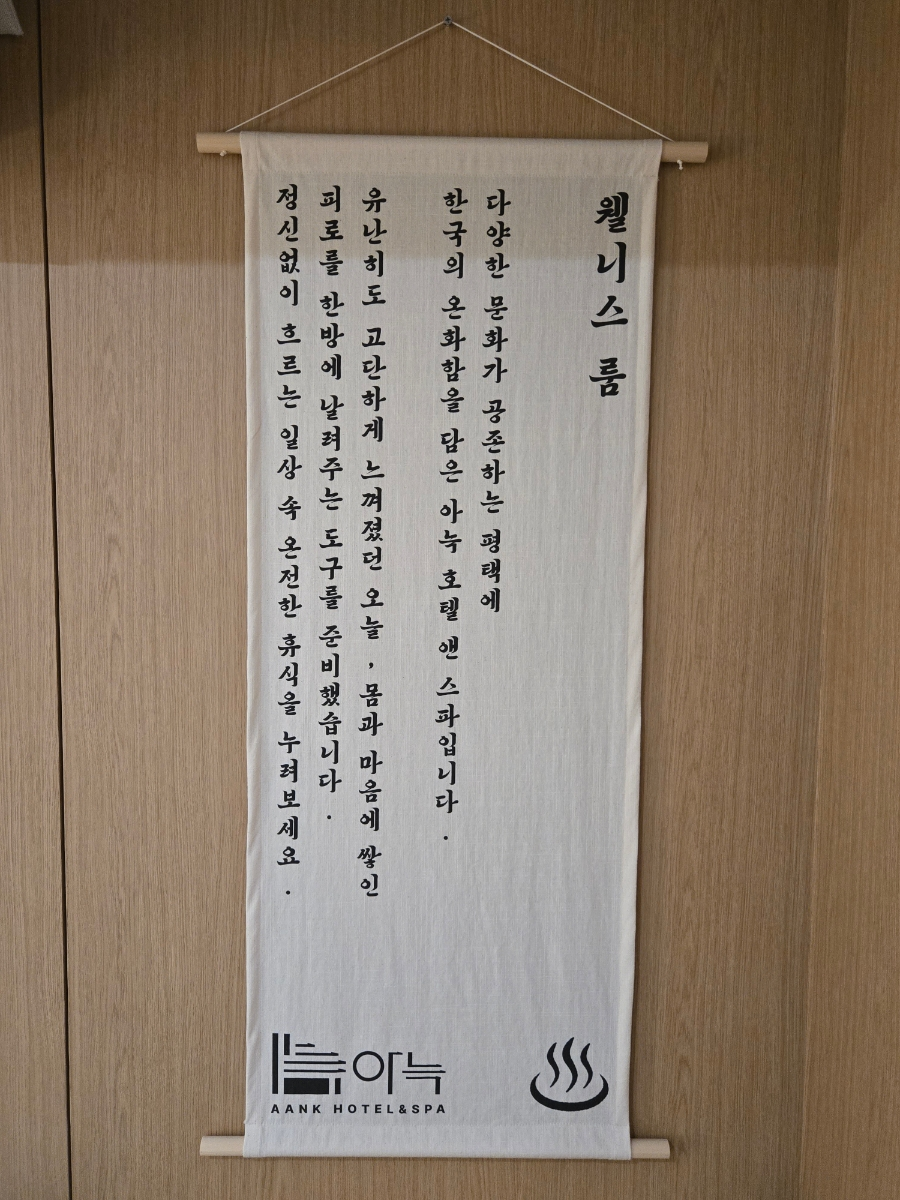 웰니스 룸
다양한 문화가 공존하는 평택에
한국의 온화함을 담은 아늑 호텔 앤 스파입니다.
유난히도 고단하게 느껴졌던 오늘, 몸과 마음에 쌓인
피로를 한방에 날려주는 도구를 준비했습니다.
정신없이 흐르는 일상 속 온전한 휴식을 누려보세요.
아늑
AANK HOTEL&SPA